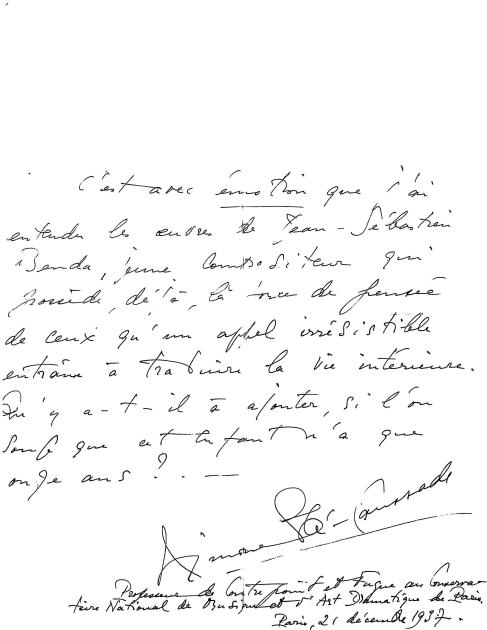 C'est avec émotion que j'ai
entendu les œuvres de Jean-Sébastien
Benda, jeune compositeur qui
possède, déjà, la force de pensée
de ceux qu'un appel irrésistible
entraîne à traduire la vie intérieure.
Qu'y a-t-il à ajouter, si l'on
songe que cet enfant n'a que
onze ans ? . . —
Simone Plé-Caussade
Professeur de Contrepoint et Fugue au Conserva-
toire National de Musique et d'Art Dramatique de Paris.
Paris, 21 décembre 1937.